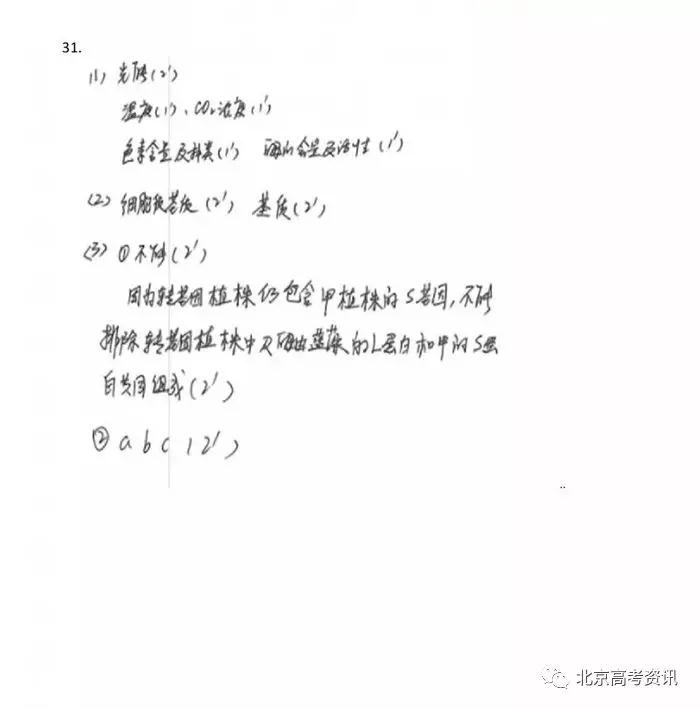 31.
(1) 光能(2')
温度(1')、CO₂浓度(1')
色素含量及种类(1') 酶的含量及活性(1')
(2) 细胞质基质(2') 基质(2')
(3) ①不能(2')
因为转基因植株仍包含甲植株的S基因,不能
排除转基因植株中R酶由蓝藻的L蛋白和甲的S蛋
白共同组成(2')
② a b c (2')
北京高考资讯